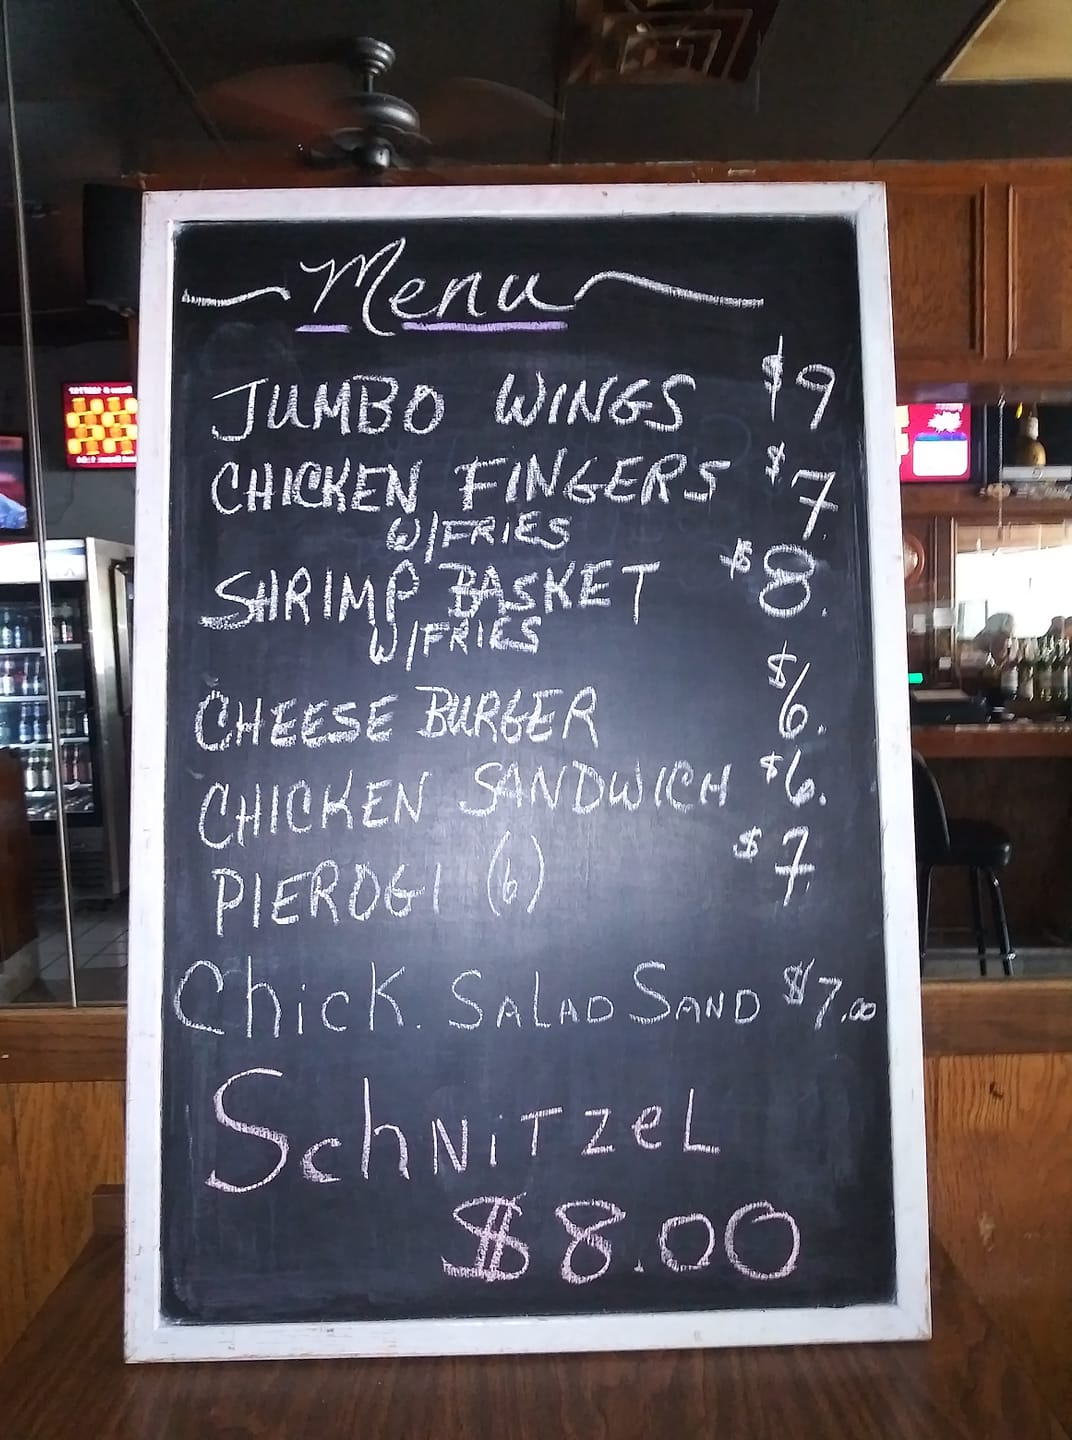 Menu
JUMBO WINGS $9
CHICKEN FINGERS $7.
W/FRIES
SHRIMP BASKET $8.
W/FRIES
CHEESE BURGER $6.
CHICKEN SANDWICH $6.
PIEROGI (6) $7.
Chick. SALAD SAND $7.00
SchNiTZeL
$8.00